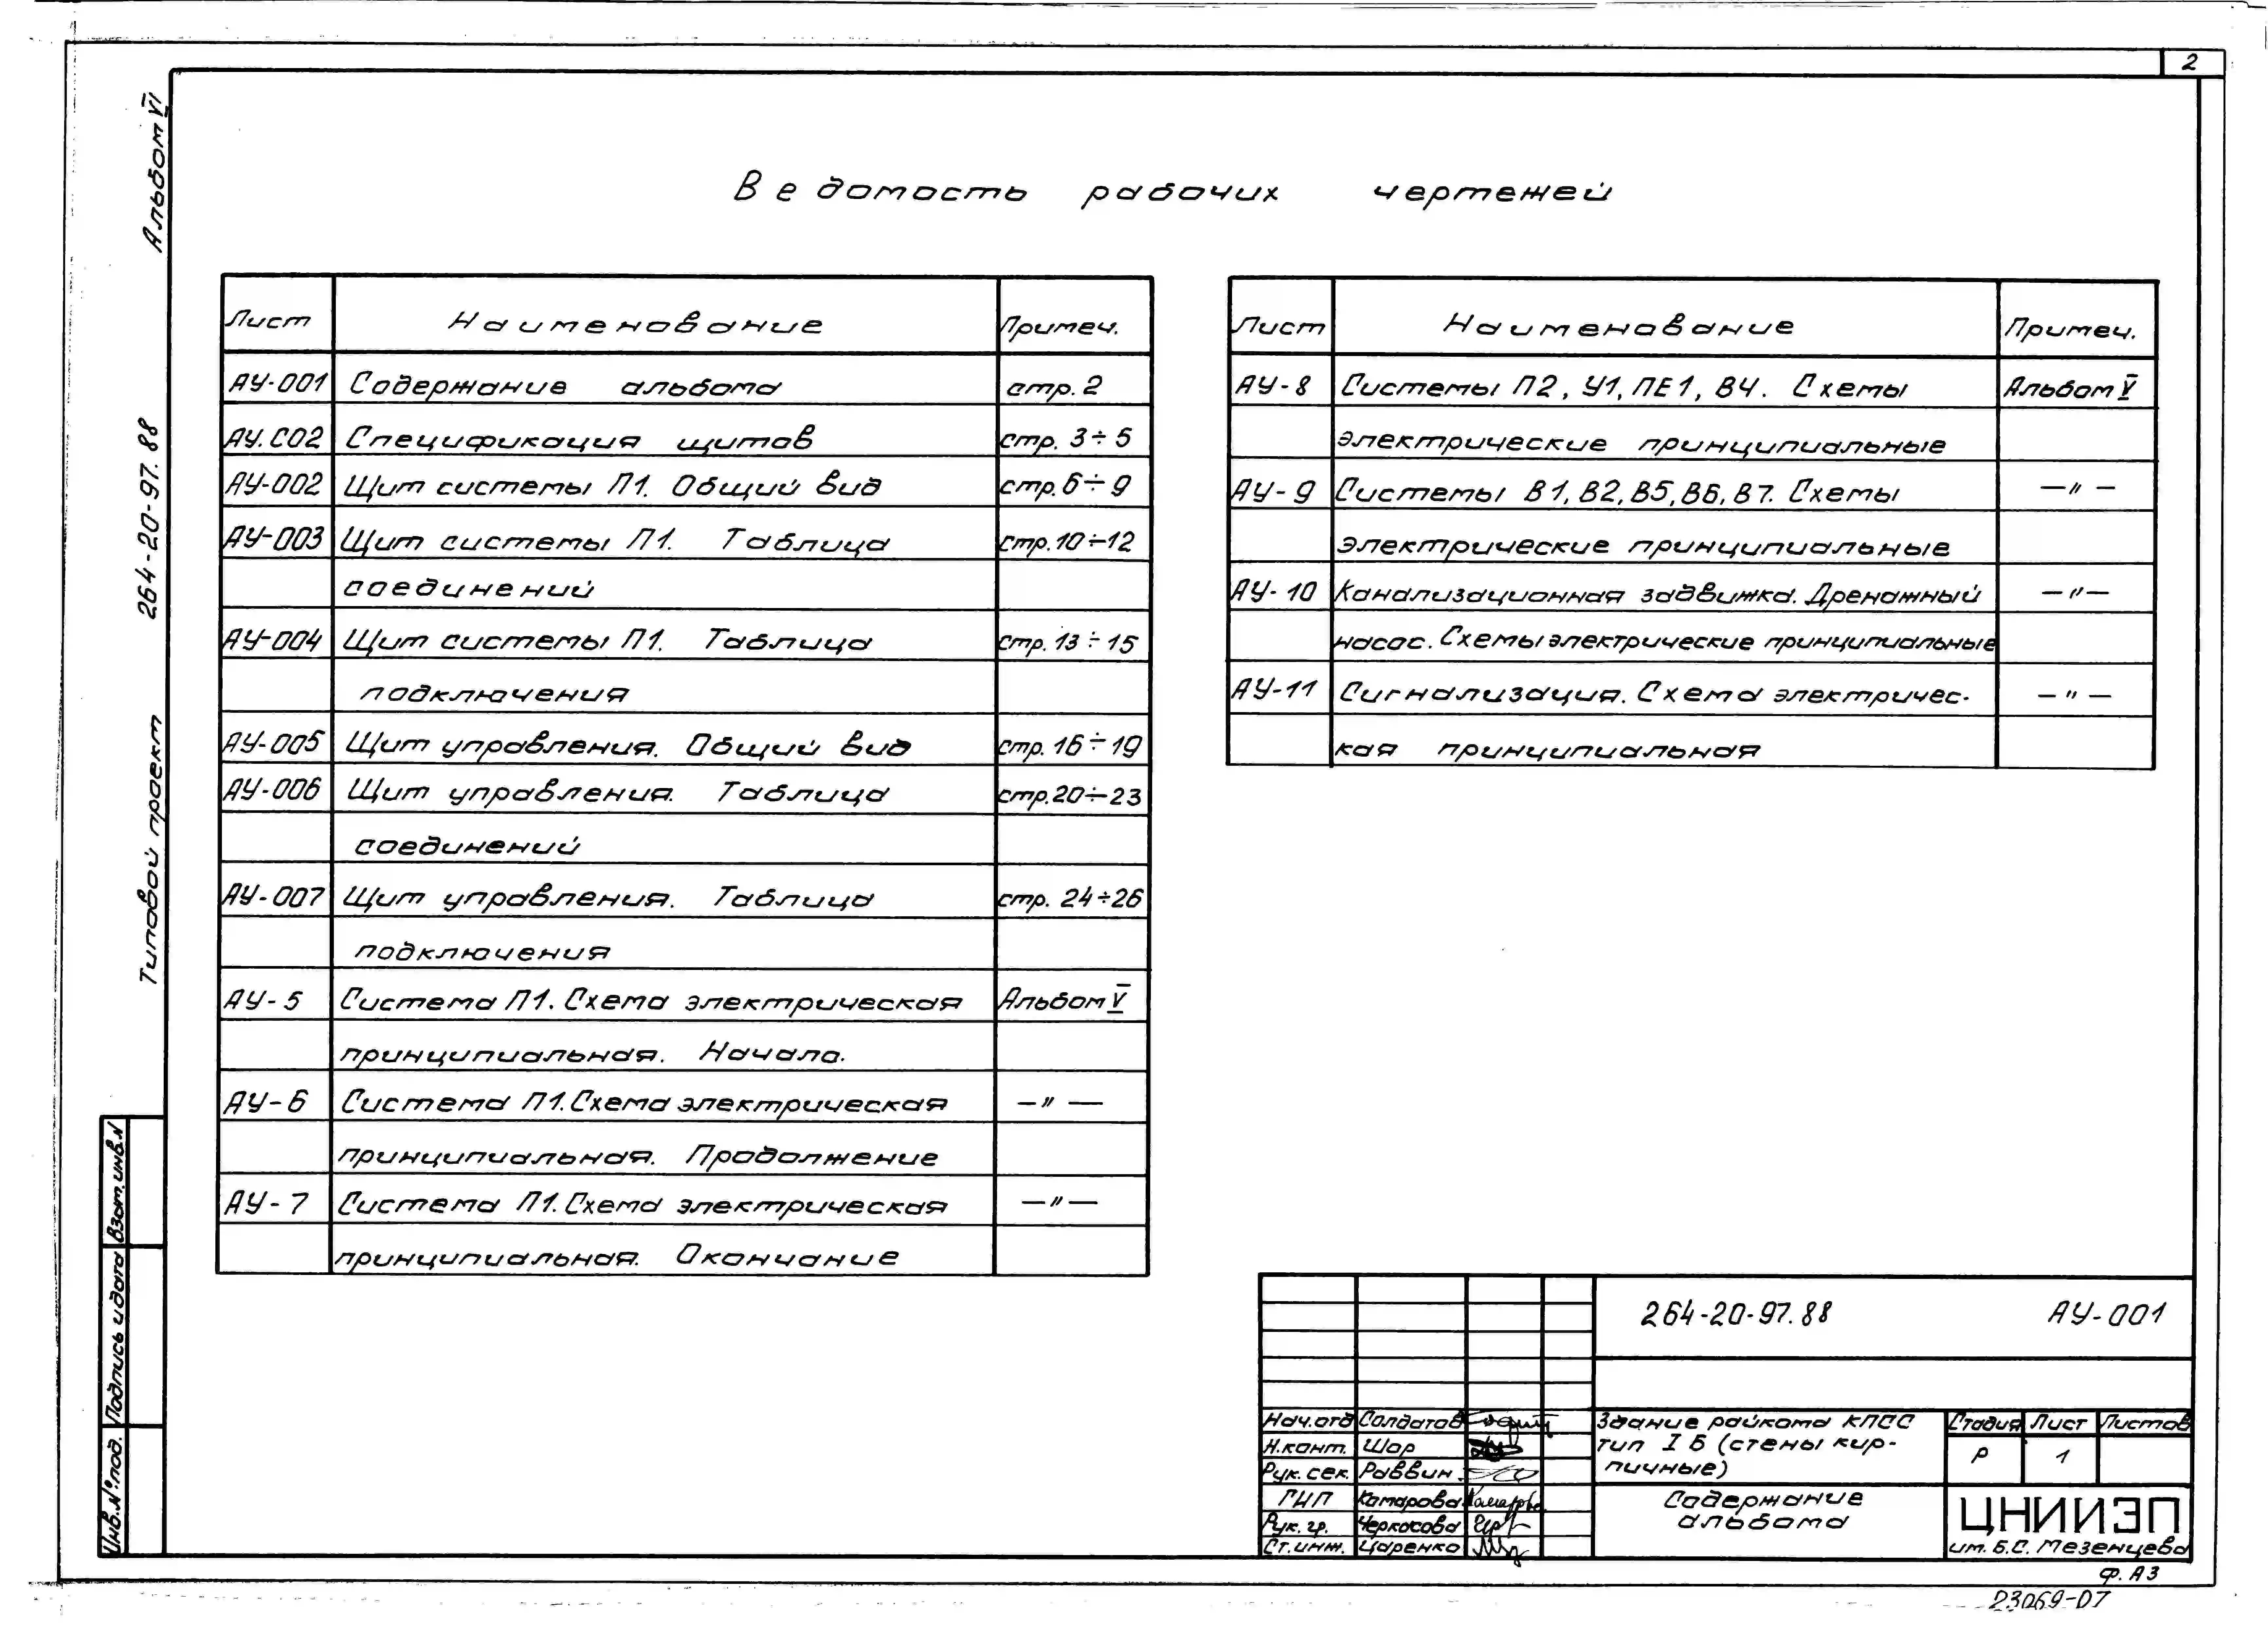 2
Альбом VI
Типовой проект 264-20-97.88
Ведомость рабочих чертежей
Лист Наименование Примеч.
АУ-001 Содержание альбома стр. 2
АУ.СО2 Спецификация щитов стр. 3÷5
АУ-002 Щит системы П1. Общий вид стр. 6÷9
АУ-003 Щит системы П1. Таблица стр. 10÷12
соединений
АУ-004 Щит системы П1. Таблица стр. 13÷15
подключения
АУ-005 Щит управления. Общий вид стр. 16÷19
АУ-006 Щит управления. Таблица стр. 20÷23
соединений
АУ-007 Щит управления. Таблица стр. 24÷26
подключения
АУ-5 Система П1. Схема электрическая Альбом V
принципиальная. Начало.
АУ-6 Система П1. Схема электрическая —"—
принципиальная. Продолжение
АУ-7 Система П1. Схема электрическая —"—
принципиальная. Окончание
Лист Наименование Примеч.
АУ-8 Системы П2, У1, ПЕ1, В4. Схемы Альбом V
электрические принципиальные
АУ-9 Системы В1, В2, В5, В6, В7. Схемы —"—
электрические принципиальные
АУ-10 Канализационная задвижка. Дренажный —"—
насос. Схемы электрические принципиальные
АУ-11 Сигнализация. Схема электричес- —"—
кая принципиальная
Взам. инв. N
Подпись и дата
Инв. № под.
264-20-97.88 АУ-001
Нач. отд Солдатов
Н. конт. Шор
Рук. сек. Раввин
ГИП Комарова
Рук. гр. Черкасова
Ст. инж. Царенко
Здание райкома КПСС
тип I Б (стены кир-
пичные)
Стадия Лист Листов
Р 1
Содержание
альбома
ЦНИИЭП
им. Б.С. Мезенцева
ф. А3
23069-07